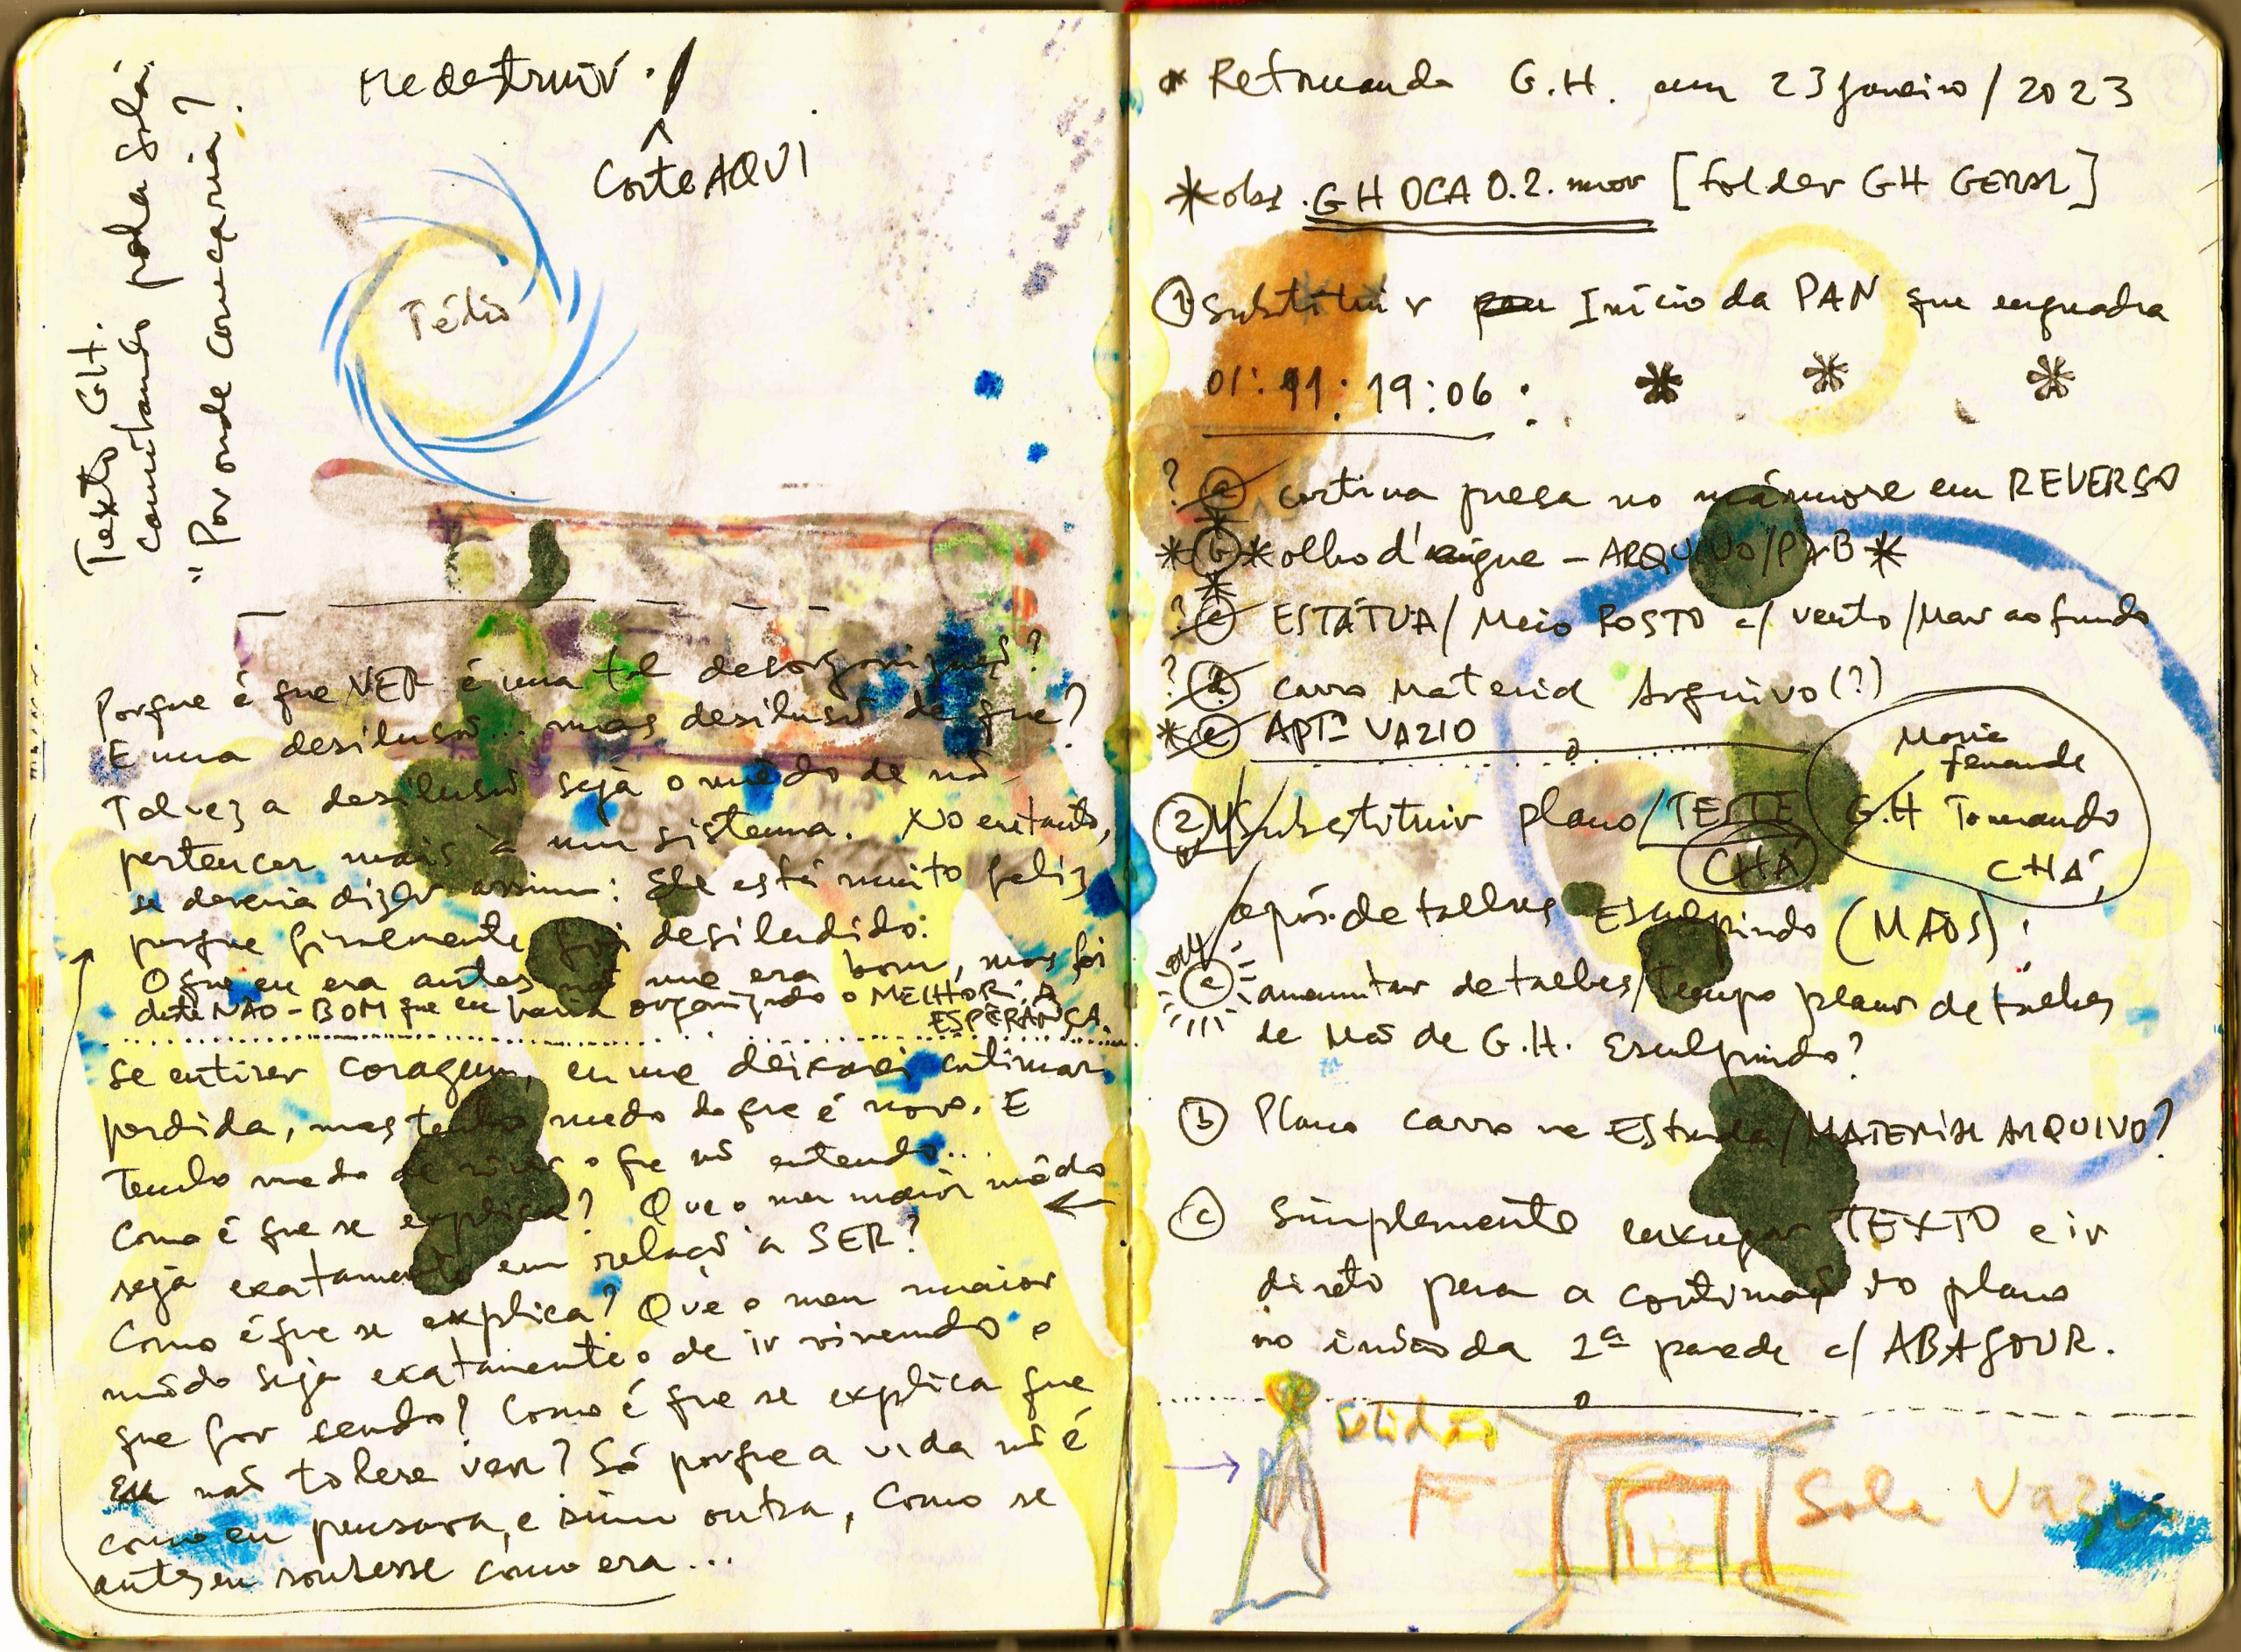 Me destruir. /
^
Corte AQUI
Texto GH.
caminhando pela sala
"Por onde começaria?
Tédio
Porque é que VER é uma tal desorganizaçã?
E uma desilusã... mas desilusã de que?
Talvez a desilusã seja o mêdo de nã
pertencer mais à um sistema. No entanto,
se deveria dizer assim: Ele está muito feliz
porque finalmente foi desiludido:
O que eu era antes nã me era bom, mas foi
deste NÃO-BOM que eu havia organizado o MELHOR: A
ESPERANÇA.
Se entiver coragem, eu me deixarei continuar
perdida, mas tenho medo do que é novo. E
tenho medo de viver o que nã entendo...
Como é que se explica? Que o meu maior mêdo
seja exatamente em relaçã a SER?
Como é que se explica? Que o meu maior
mêdo seja exatamente o de ir vivendo o
que for sendo? Como é que se explica que
eu naõ tolere ver? Só porque a vida nã é
como eu pensava, e sim outra, como se
antes eu soubesse como era...
* Retomando G.H. em 23 janeiro/2023
* obs. GH OCA 0.2. mov [folder GH GERAL]
① Substituir Início da PAN que enquadra
01: 11: 19:06 : * * *
? ⓐ cortina presa no mármore em REVERSO
* ⓑ * olho d'aigue - ARQUIVO/PAB *
? ⓒ ESTÁTUA/ Meio ROSTO c/ vento/Mar ao fundo
? ⓓ carro Material Arquivo (?)
* ⓔ APTº VAZIO
② Substituir plano/TESTE G.H Tomando
CHÁ
Maria
Fernanda
CHÁ,
após detalhes Esculpindo (MÃOS):
ⓐ aumentar detalhes/tempo plano detalhes
de Mã de G.H. Esculpindo?
ⓑ Plano carro na Estrada/MATERIAL ARQUIVO?
ⓒ Simplesmente enxugar TEXTO e ir
direto para a continuaçã do plano
no início da 2ª parede c/ ABAJOUR.
→ Solidão
Sala Vazia